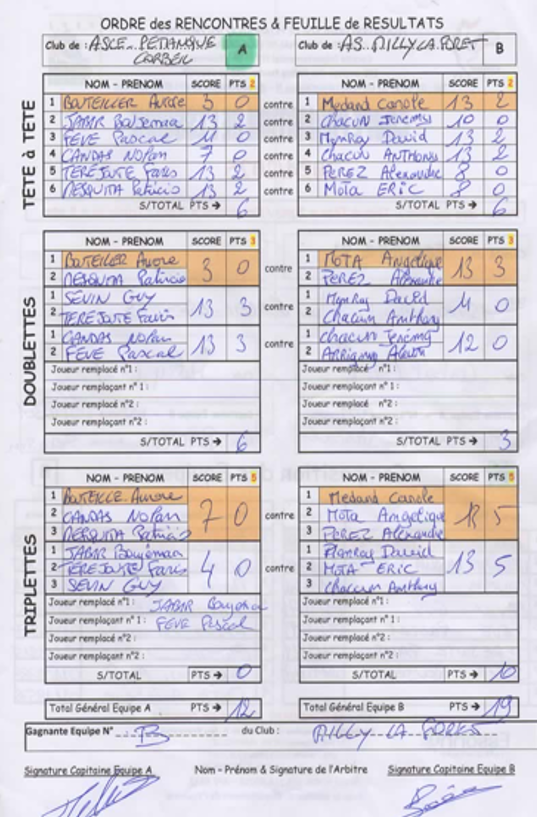 ORDRE des RENCONTRES & FEUILLE de RESULTATS
Club de : ASCE PETANQUE CORBEIL A
Club de : AS. MILLY LA FORET B
TÊTE à TÊTE
NOM - PRENOM SCORE PTS 2 NOM - PRENOM SCORE PTS 2
1 BOUTEILLER Aurore 3 0 contre 1 Medard Carole 13 2
2 JABAR 13 2 contre 2 Chacun Jeremy 10 0
3 FEVE Pascal 11 0 contre 3 David 13 2
4 CANDAS Nolan 7 0 contre 4 Chacun ANTHONY 13 2
5 TEREJOUTE Faris 13 2 contre 5 PEREZ Alexandre 8 0
6 MESQUITA Patricio 13 2 contre 6 Mota ERIC 8 0
S/TOTAL PTS → 6 S/TOTAL PTS → 6
DOUBLETTES
NOM - PRENOM SCORE PTS 3 NOM - PRENOM SCORE PTS 3
1 BOUTEILLER Aurore 3 0 contre 1 MOTA Angelique 13 3
2 MESQUITA Patricio 2 PEREZ Alexandre
1 SEVIN GUY 13 3 contre 1 David 11 0
2 TEREJOUTE Faris 2 Chacun Anthony
1 CANDAS Nolan 13 3 contre 1 Chacun Jeremy 12 0
2 FEVE Pascal 2
Joueur remplacé n°1 : Joueur remplacé n°1 :
Joueur remplaçant n°1 : Joueur remplaçant n°1 :
Joueur remplacé n°2 : Joueur remplacé n°2 :
Joueur remplaçant n°2 : Joueur remplaçant n°2 :
S/TOTAL PTS → 6 S/TOTAL PTS → 3
TRIPLETTES
NOM - PRENOM SCORE PTS 5 NOM - PRENOM SCORE PTS 5
1 BOUTEILLE Aurore 1 Medard Carole
2 CANDAS Nolan 7 0 contre 2 Mota Angelique 5
3 MESQUITA Patricio 3 PEREZ Alexandre
1 JABAR 1 David
2 TEREJOUTE Faris 4 0 contre 2 MOTA ERIC 13 5
3 SEVIN GUY 3 Chacun Anthony
Joueur remplacé n°1 : JABAR Joueur remplacé n°1 :
Joueur remplaçant n°1 : FEVE Pascal Joueur remplaçant n°1 :
Joueur remplacé n°2 : Joueur remplacé n°2 :
Joueur remplaçant n°2 : Joueur remplaçant n°2 :
S/TOTAL PTS → 0 S/TOTAL PTS → 10
Total Général Equipe A PTS → 12 Total Général Equipe B PTS → 19
Gagnante Equipe N° B du Club : MILLY LA FORET
Signature Capitaine Equipe A Nom - Prénom & Signature de l'Arbitre Signature Capitaine Equipe B